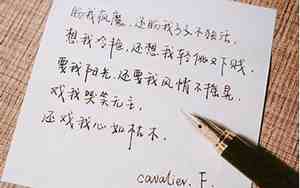 盼我疯魔，还盼我孑孓不独活，
想我冷艳，还想我轻佻又下贱。
要我阳光，还要我风情不摇晃。
戏我哭笑无主，
还戏我心如枯木。
cavalier. F.